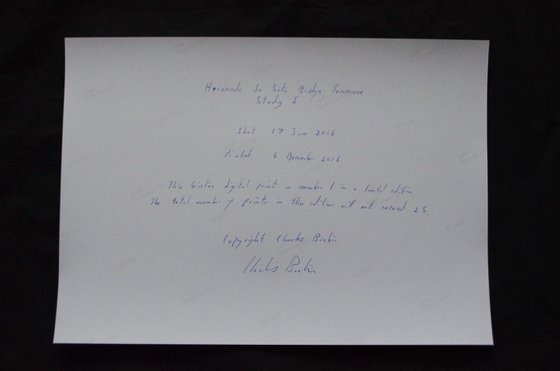 Hernando de Soto Bridge, Tennessee
Study I
Shot 17 June 2016
Printed 6 December 2016
This Giclée digital print is number 1 in a limited edition
The total number of prints in this edition will not exceed 25
Copyright Charles
Charles